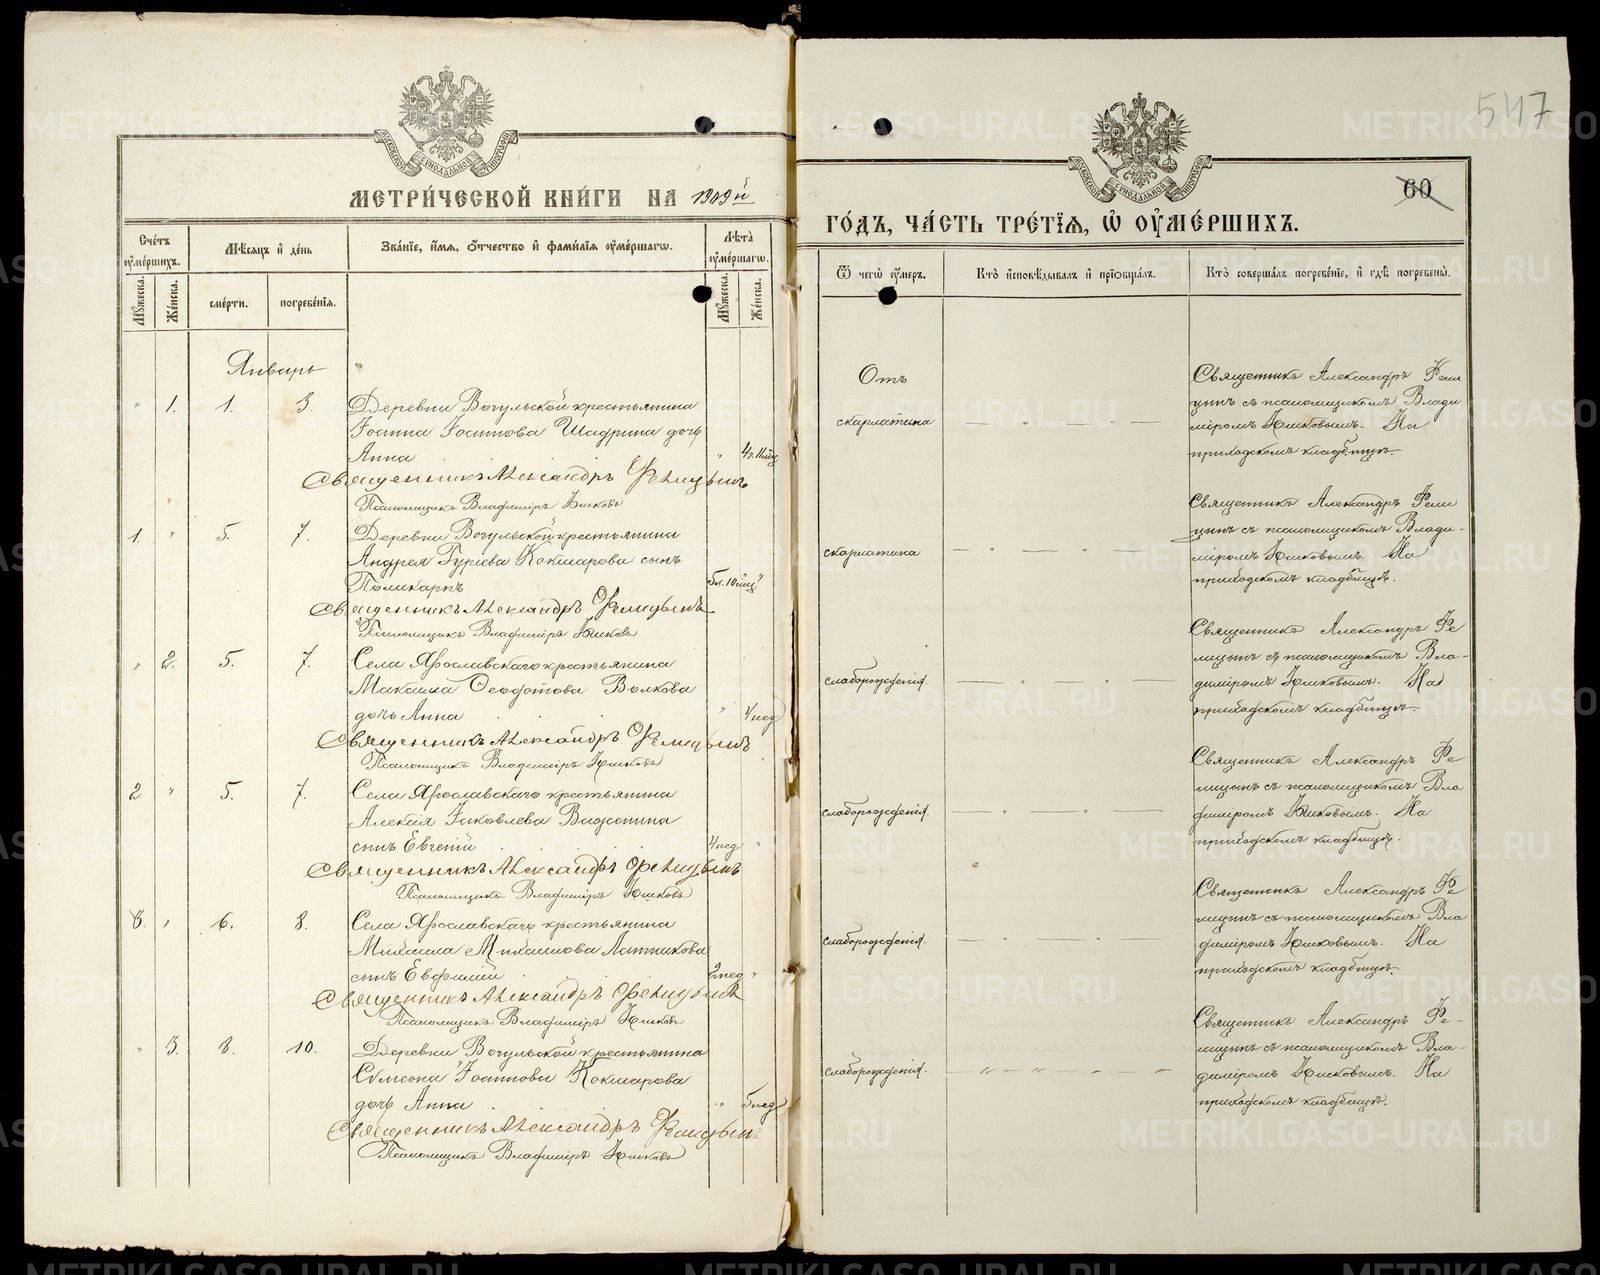 547
60
МОСКОВСКОЙ СѴНОДАЛЬНОЙ ТИПОГРАФІИ
МЕТРИ́ЧЕСКОЙ КНИ́ГИ НА 1909й
ГО́ДЪ, ЧА́СТЬ ТРЕ́ТІѦ, Ѡ ОУМЕ́РШИХЪ.
Сче́тъ оуме́ршихъ.
Мꙋжеска.
Же́нска.
Мѣ́сѧцъ и де́нь
сме́рти.
погребе́нїѧ.
Зва́нїе, и́мѧ, о́тчество и фами́лїѧ оуме́ршагѡ.
Лѣ́та оуме́ршагѡ.
Мꙋжеска.
Же́нска.
Ѿ чегѡ̀ оу́меръ.
Кто̀ и҆сповѣ́дывалъ и҆ прїѡбща́лъ.
Кто̀ соверша́лъ погребе́нїе, и҆ гдѣ̀ погребены̀.
Январь
" 1. 1. 3. Деревни Вогульской крестьянина
Іоанна Іоаннова Шадрина дочь
Анна " 4г. 11 мц
Священникъ Александръ Фелицынъ
Псаломщикъ Владиміръ
Отъ
скарлатина
Священникъ Александръ Фели
цынъ съ псаломщикомъ Влади
міромъ На
приходскомъ кладбищѣ.
1. " 5. 7. Деревни Вогульской крестьянина
Андрея Гуріева Кокшарова сынъ
Поликарпъ 5л. 10 мц "
Священникъ Александръ Фелицынъ
Псаломщикъ Владиміръ
скарлатина
Священникъ Александръ Фели
цынъ съ псаломщикомъ Влади-
міромъ На
приходскомъ кладбищѣ.
" 2. 5. 7. Села Ярославскаго крестьянина
Максима Ѳеодотова Волкова
дочь Анна " 4 нед
Священникъ Александръ Фелицынъ
Псаломщикъ Владиміръ
слаборожденія.
Священникъ Александръ Фе
лицынъ съ псаломщикомъ Вла-
диміромъ На
приходскомъ кладбищѣ.
2 " 5. 7. Села Ярославскаго крестьянина
Алексія Іаковлева
сынъ Евгеній 4 нед "
Священникъ Александръ Фелицынъ
Псаломщикъ Владиміръ
слаборожденія.
Священникъ Александръ Фе
лицынъ съ псаломщикомъ Вла
диміромъ На
приходскомъ кладбищѣ.
3. " 6. 8. Села Ярославскаго крестьянина
Михаила Михаилова
сынъ Евфимій 2 нед "
Священникъ Александръ Фелицынъ
Псаломщикъ Владиміръ
слаборожденія.
Священникъ Александръ Фе
лицынъ съ псаломщикомъ Вла
диміромъ На
приходскомъ кладбищѣ.
" 3. 8. 10. Деревни Вогульской крестьянина
Сѵмеона Іоаннова Кокшарова
дочь Анна " 5 нед
Священникъ Александръ Фелицынъ
Псаломщикъ Владиміръ
слаборожденія.
Священникъ Александръ Фе-
лицынъ съ псаломщикомъ Вла-
диміромъ На
приходскомъ кладбищѣ.
METRIKI.GASO-URAL.RU